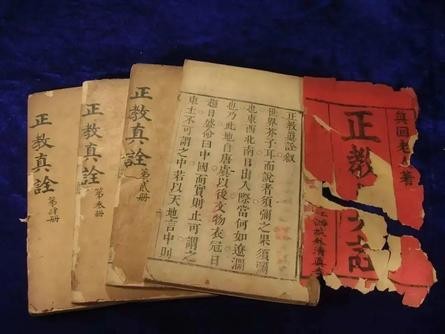 眞回老人著
正教真詮
正教真詮叙
世界芥子耳而說者須彌之果須瀰
也東西北南日出入際當何如遼濶
也乃此地自唐虞以後文物衣冠日
趨日盛命曰中國而實則止可謂之
東土不可謂之中若以天地言中則
正教真詮
第貳册
正教真詮
第叁册
正教真詮
第肆册